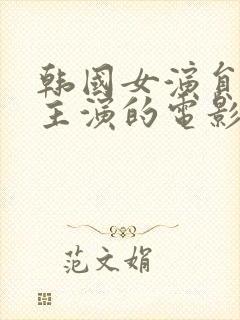 韩國女演員
主演的電影
范文娟